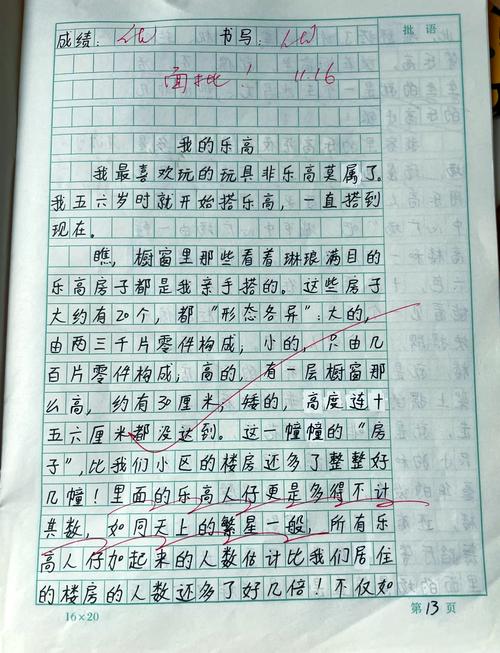 批语
成绩: 书写:
面批! 11.16
我的乐高
我最喜欢玩的玩具非乐高莫属了。
我五六岁时就开始搭乐高,一直搭到
现在。
瞧,橱窗里那些看着琳琅满目的
乐高房子都是我亲手搭的。这些房子
大约有20个,都“形态各异”:大的,
由两三千片零件构成;小的,只由几
百片零件构成;高的,有一层橱窗那
么高,约有30厘米;矮的,高度连十
五六厘米都没达到。这一幢幢的“房
子”,比我们小区的楼房还多了整整好
几幢!里面的乐高人仔更是多得不计
其数,如同天上的繁星一般,所有乐
高人仔加起来的人数估计比我们居住
的楼房的人数还多了好几倍!不仅如
16×20 第13页